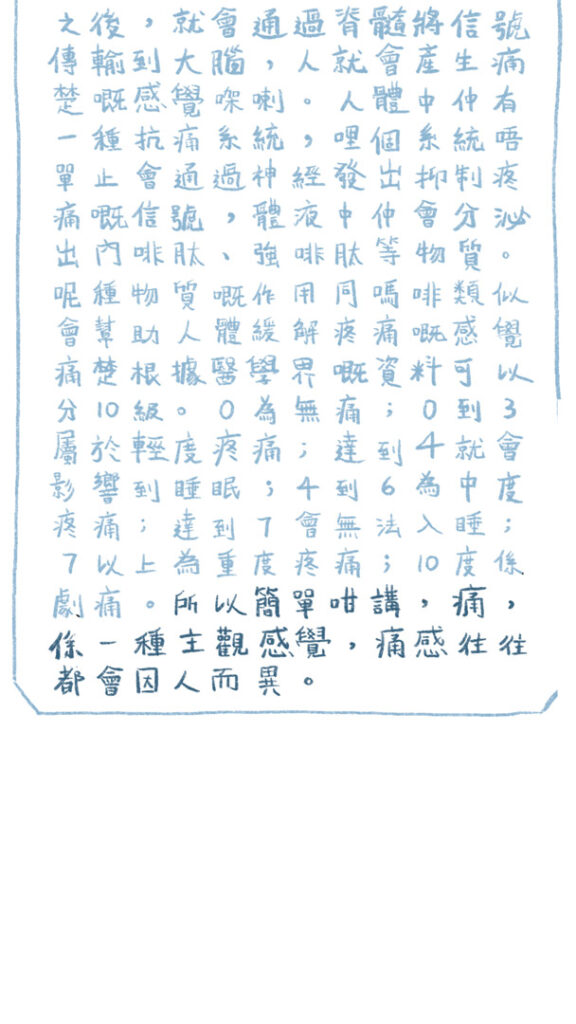 之後，就會通過脊髓將信號
傳輸到大腦，人就會產生痛
楚嘅感覺㗎喇。人體中仲有
一種抗痛系統，哩個系統唔
單止會通過神經發出抑制疼
痛嘅信號，體液中仲會分泌
出內啡肽、強啡肽等物質。
呢種物質嘅作用同嗎啡類似
會幫助人體緩解疼痛嘅感覺
痛楚根據醫學界嘅資料可以
分10級。0為無痛；0到3
屬於輕度疼痛；達到4就會
影響到睡眠；4到6為中度
疼痛；達到7會無法入睡；
7以上為重度疼痛；10度係
劇痛。所以簡單咁講，痛，
係一種主觀感覺，痛感往往
都會因人而異。